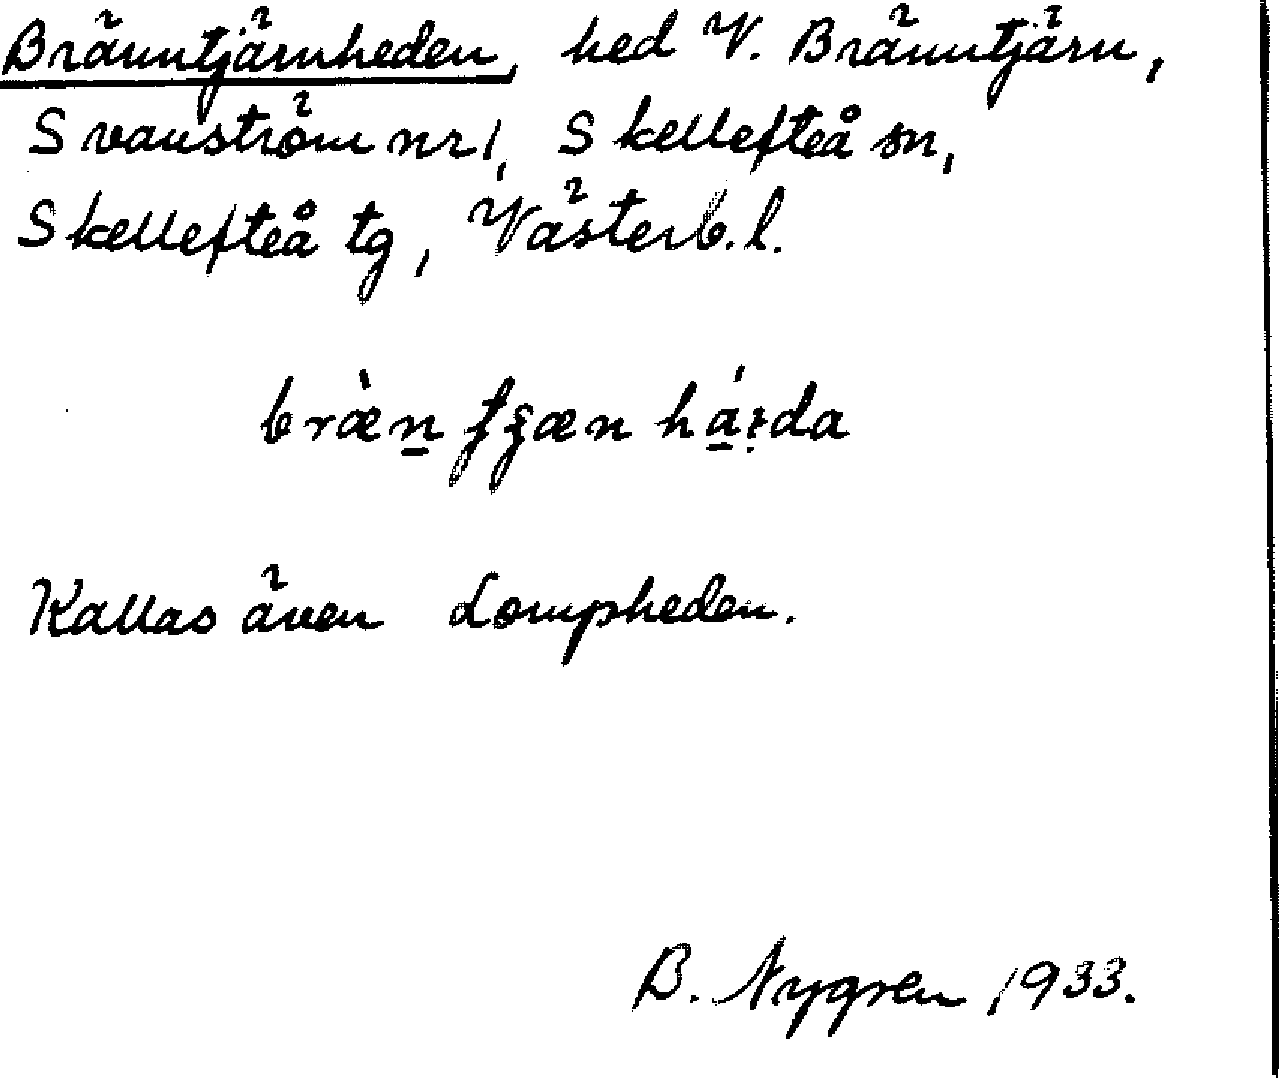 Bränntjärnheden, hed V. Bränntjärn,
Svanström nr 1, Skellefteå sn,
Skellefteå tg, Västerb. l.
Kallas även Lompheden.
B. Nygren 1933.